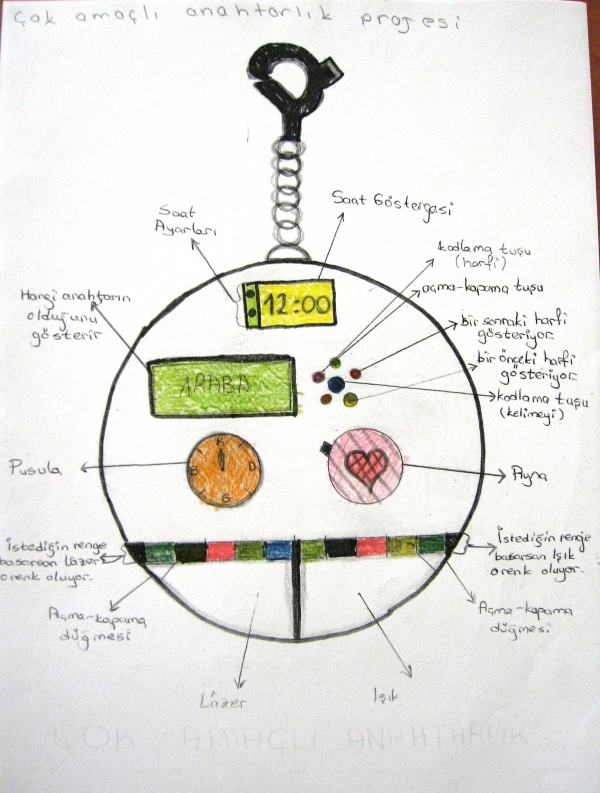 Çok amaçlı anahtarlık projesi
Saat Göstergesi
Saat
Ayarları
kodlama tuşu
(harfi)
açma-kapama tuşu
Hangi anahtarın
olduğunu
gösterir
12:00
bir sonraki harfi
gösteriyor.
bir önceki harfi
gösteriyor.
ARABA
kodlama tuşu
(kelimeyi)
K
B D
G
Pusula
Ayna
İstediğin renge
basarsan lâzer
o renk oluyor.
İstediğin renge
basarsan Işık
o renk oluyor.
Açma-kapama
düğmesi
Açma-kapama
düğmesi
Lâzer
Işık
ÇOK AMAÇLI ANAHTARLIK